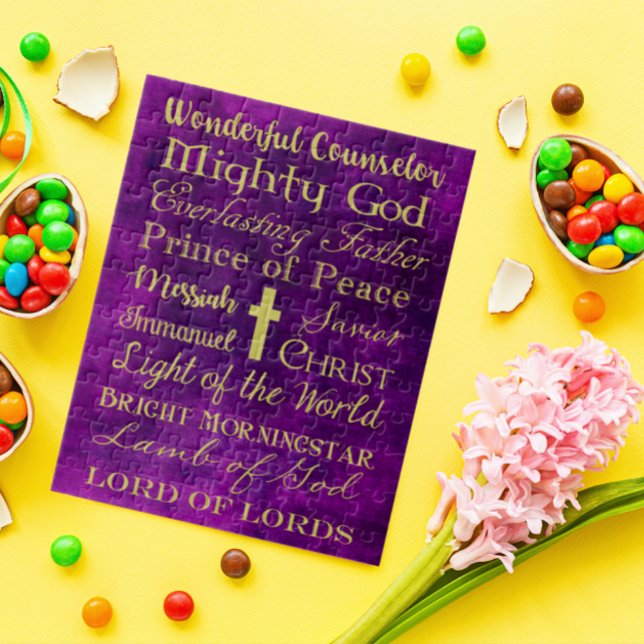 Wonderful Counselor
Mighty God
Everlasting Father
Prince of Peace
Messiah
Savior
Immanuel
CHRIST
Light of the World
BRIGHT MORNINGSTAR
Lamb of God
LORD OF LORDS